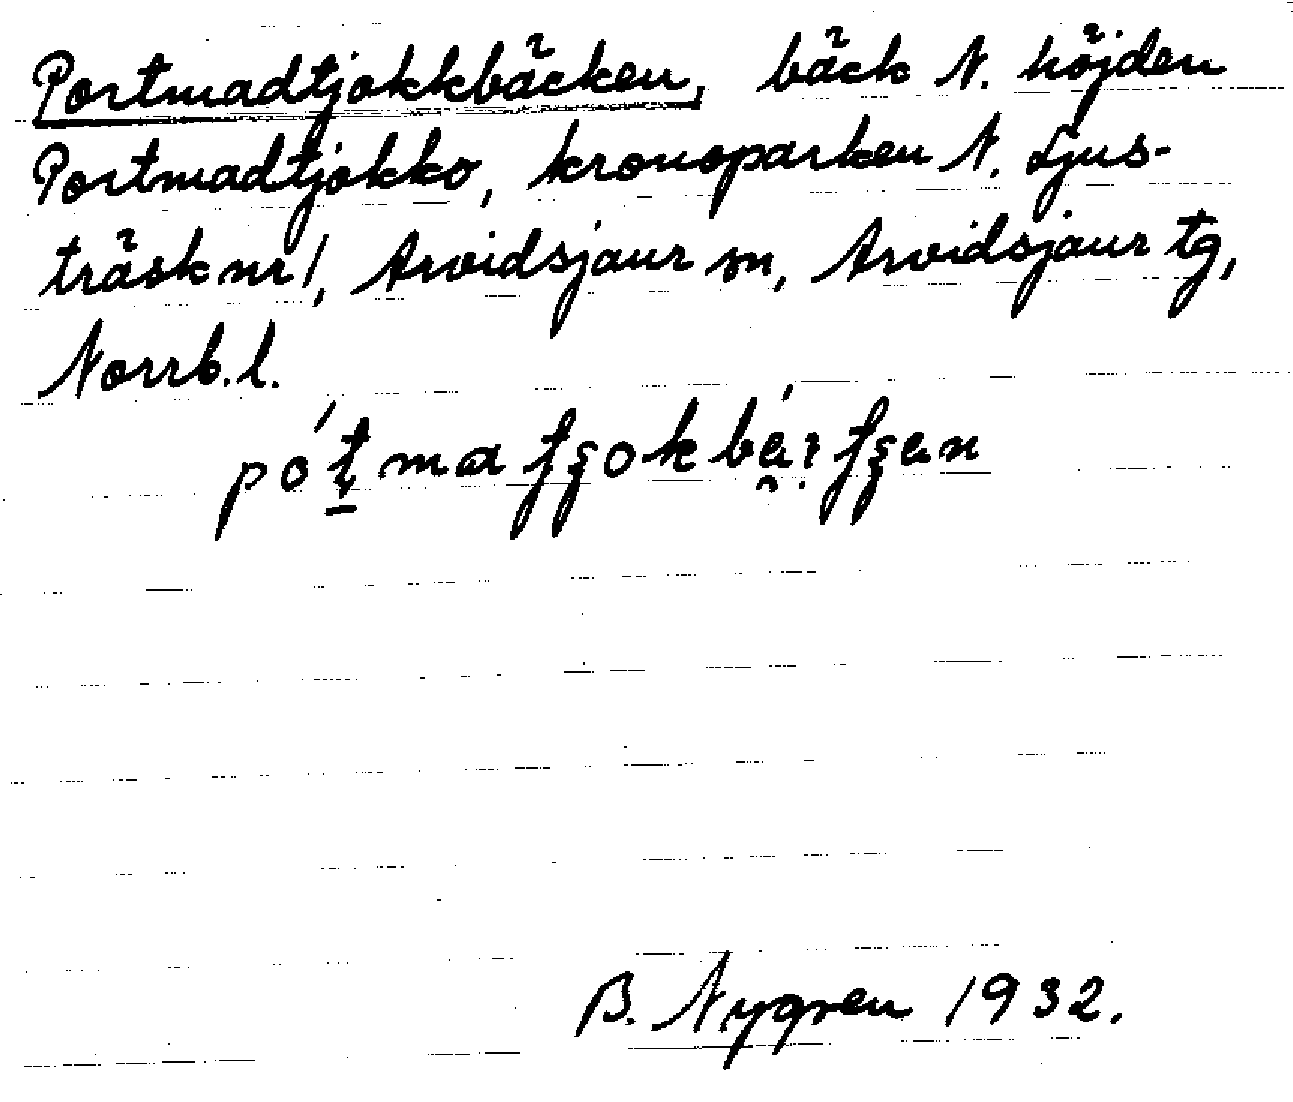 Portmadtjokkbäcken, bäck N. höjden
Portmadtjokko, kronoparken N. Ljus-
träsk nr 1, Arvidsjaur sn, Arvidsjaur tg,
Norrb. l.
B. Nygren 1932.